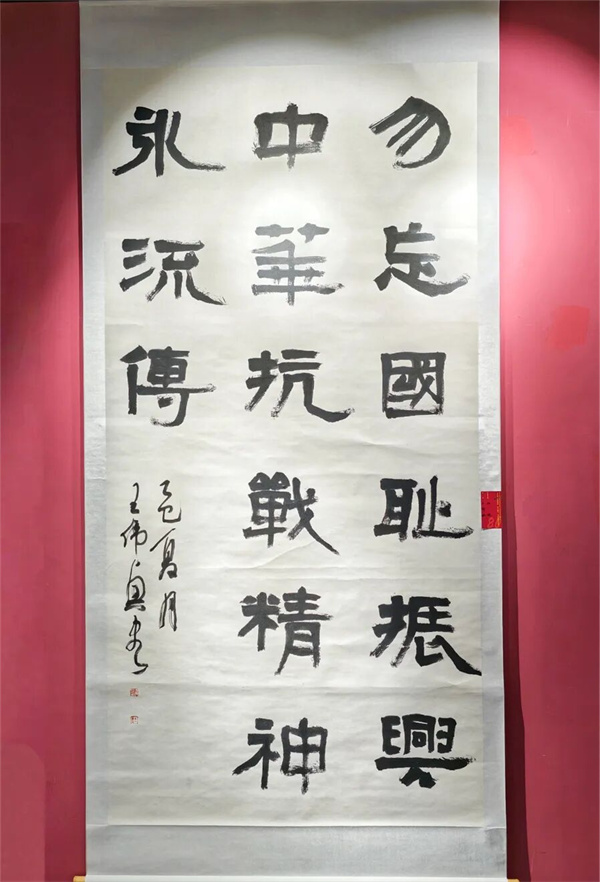 勿忘國耻振興
中華抗戰精神
永流傳
乙巳夏月
王伟貞书